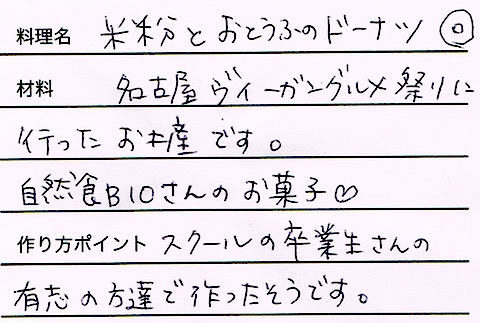 料理名 米粉とおとうふのドーナツ ◎
材料 名古屋ヴィーガングルメ祭りに
行ったお土産です。
自然食BIOさんのお菓子♡
作り方ポイント スクールの卒業生さんの
有志の方達で作ったそうです。